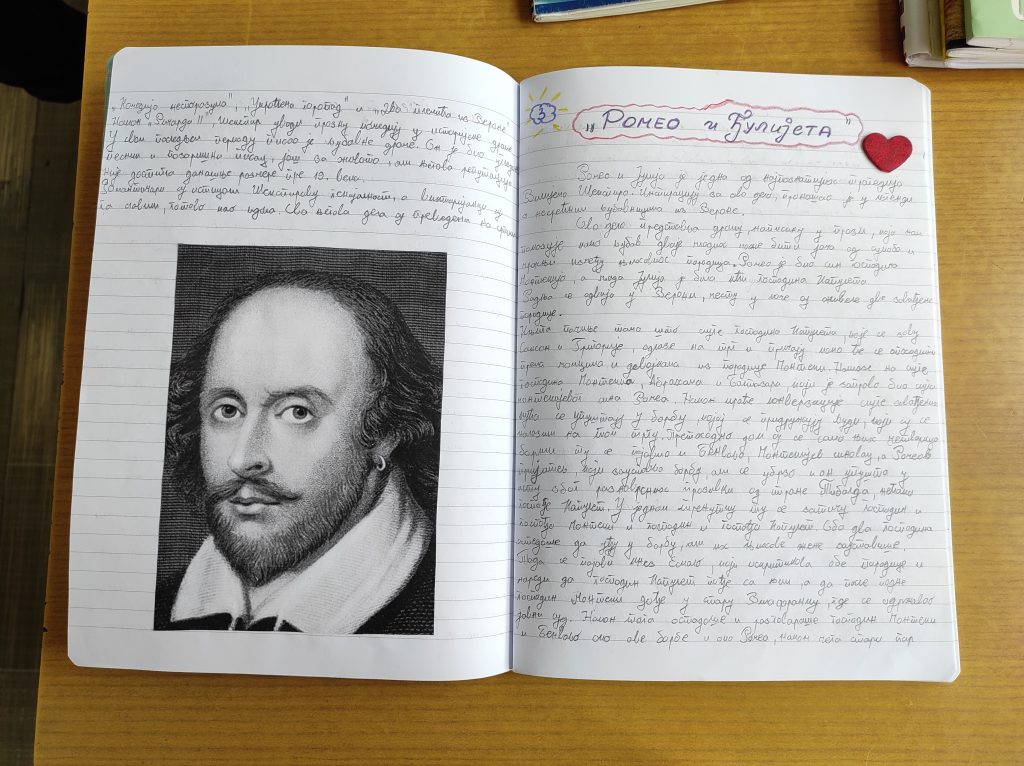 „Комедија неспоразума“, „Укроћена горопад“ и „Два племића из Вероне“
Након „Ричарда II“ Шекспир уводи прозну комедију у историјске драме
У свом последњем периоду писао је љубавне драме. Он је био цењен
песник и позоришни писац, још за живота, али његова репутација
није достигла данашње размере пре 19. века.
Шекспирову генијалност, а викторијанци су
га славили, готово као идола. Сва његова дела су преведена на
3
„Ромео и Ђулијета“
Ромео и Јулија је једна од најпознатијих трагедија
Вилијема Шекспира. Инспирацију за ово дело, пронашао је у легенди
о несрећним љубавницима из Вероне.
Ово дело представља драму написану у прози, која нам
показује како љубав двоје младих може бити јача од сукоба и
мржњи између њихових породица. Ромео је био син господина
Монтекија, а млада Јулија је била кћи господина Капулета.
Радња се одвија у Верони, месту у коме су живеле две завађене
породице.
Књига почиње тако што слуге господина Капулета, које се зову
Самсон и Грегорије, одлазе на трг и причају како ће се
према момцима и девојкама из породице Монтеки. Наилазе на слуге
господина Монтекија, Абрахама и Балтазара који је заправо био слуга
Монтекијевог сина Ромеа. Након краће конверзације слуге завађених
се упуштају у борбу, којој се придружују људи, који су се
налазили на том тргу. Претходно док су се само њих четворица
борили ту се појавио и Бенволио, Монтекијев синовац, а Ромеов
пријатељ, који зауставља борбу, али се убрзо и он упушта у
исту због разноврсних прозивки од стране Тибалда, нећака
госпође Капулет. У једном тренутку ту се затичу господин и
госпођа Монтеки и господин и госпођа Капулет. Оба два господина
да уђу у борбу, али их њихове жене
Тада се појави кнез Ескало, који искритикова обе породице и
нареди да господин Капулет пође са њим, а да после подне
господин Монтеки дође у стару Вилафранку, где се одржавао
јавни суд. Након тога остадоше и разговараше господин Монтеки
и Бенволио око ове борбе и око Ромеа, након чега стари пар